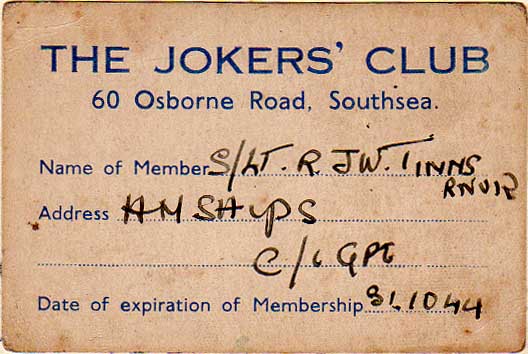 THE JOKERS' CLUB
60 Osborne Road, Southsea.
Name of Member S/LT. R. J W. TINNS
RNVR
Address HM SHIPS
C/o GPO
Date of expiration of Membership 31.10.44